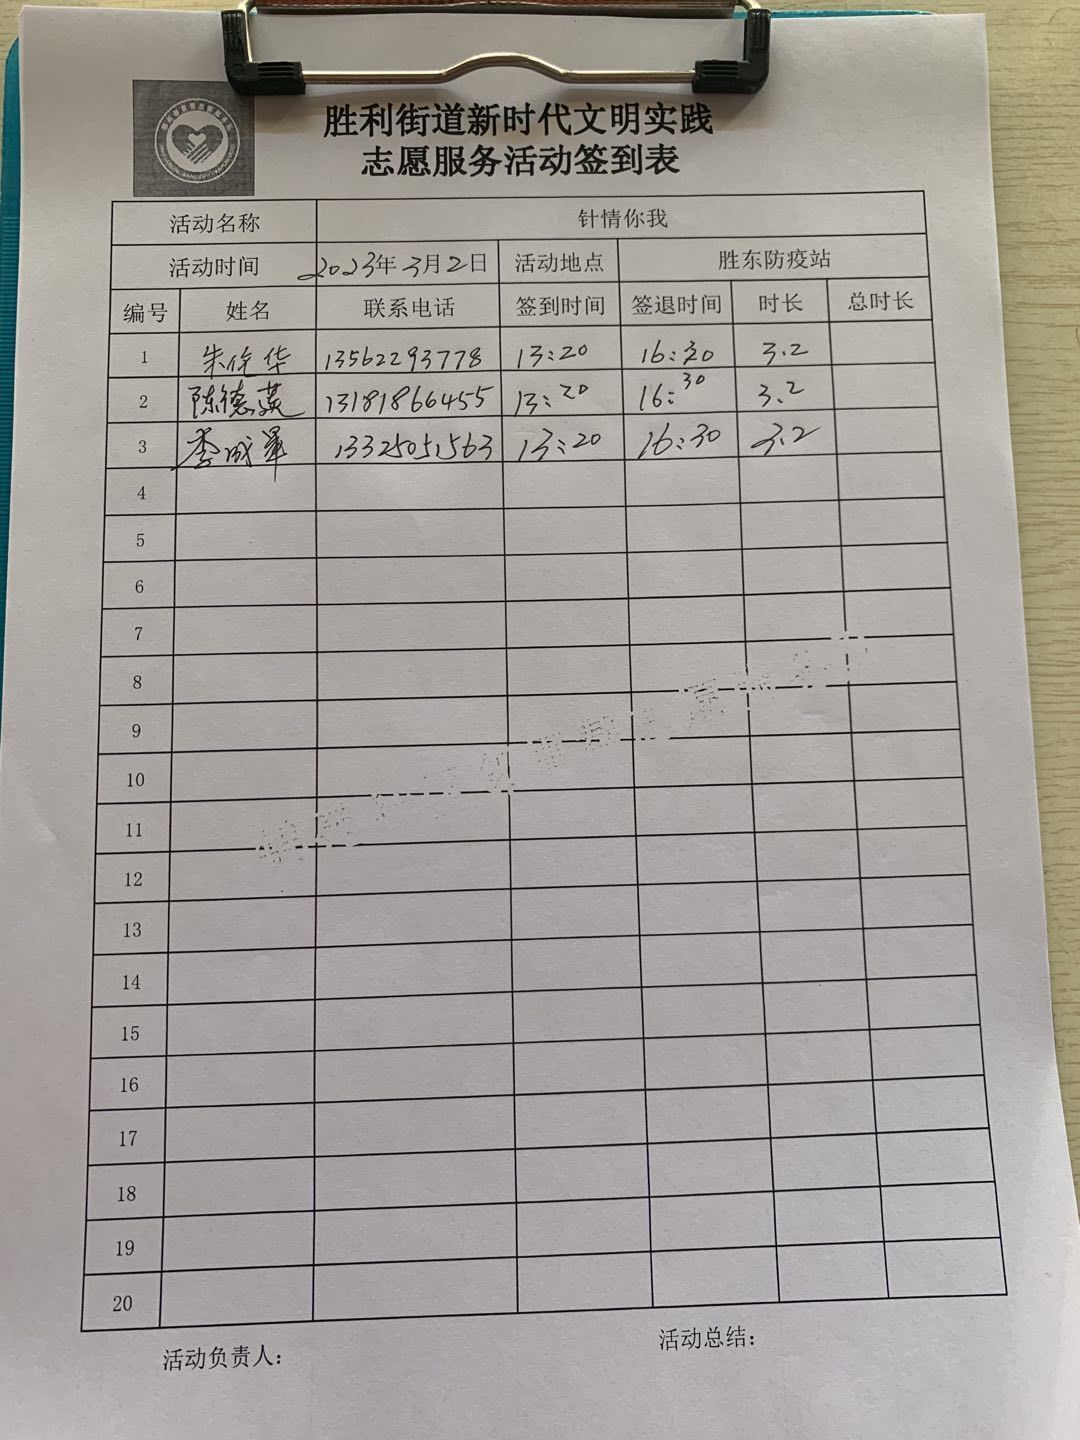 胜利街道新时代文明实践
志愿服务活动签到表
活动名称 针情你我
活动时间 2023年3月2日 活动地点 胜东防疫站
编号 姓名 联系电话 签到时间 签退时间 时长 总时长
1 朱 华 13562293778 13:20 16:30 3.2
2 陈德英 13181866455 13:20 16:30 3.2
3 李成军 13325051563 13:20 16:30 3.2
4
5
6
7
8
9
10
11
12
13
14
15
16
17
18
19
20
活动负责人: 活动总结: